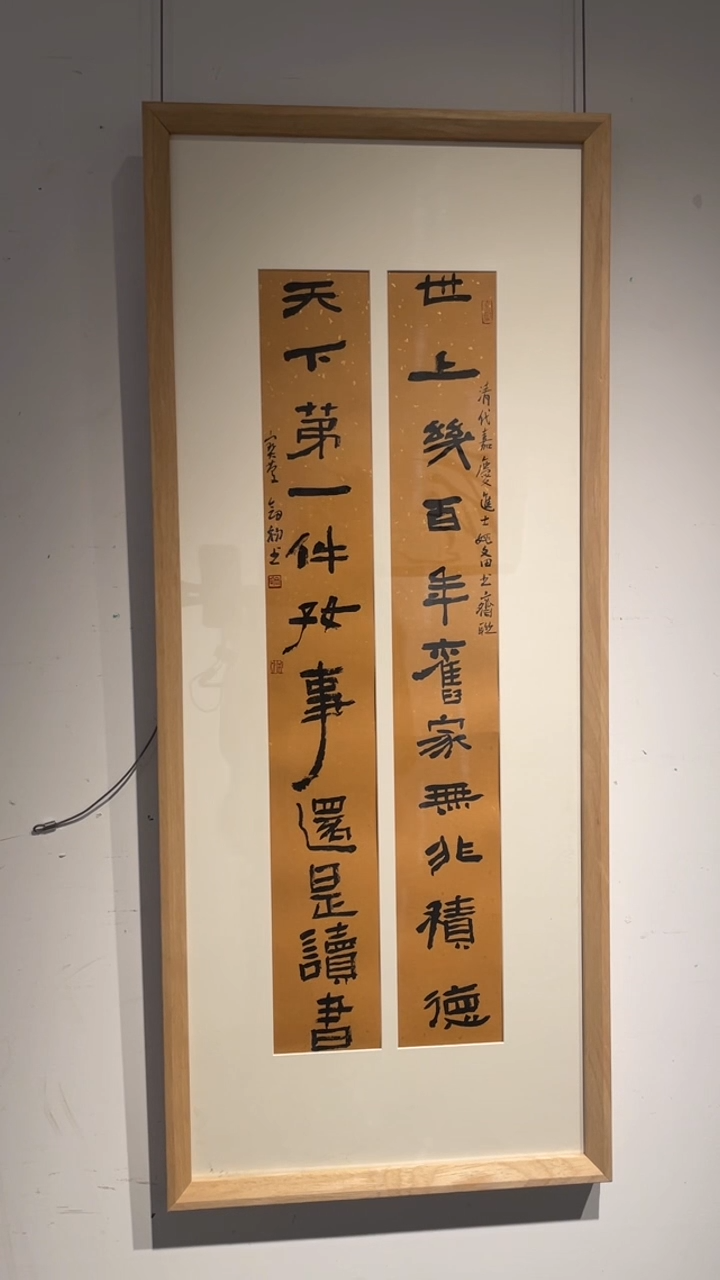 世上幾百年舊家無非積德
清代嘉慶進士姚文田書齋聯
天下第一件好事還是讀書